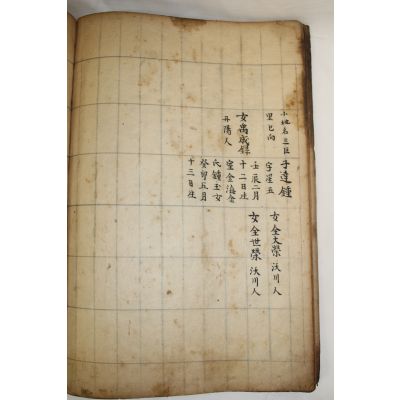 小地名三巨
里巳向
女禹成錄
丹陽人
子達鍾
字星五
壬辰二月
十二日生
室金海金
氏鍾玉女
癸卯五月
十三日生
女全大榮 沃川人
女全世榮 沃川人